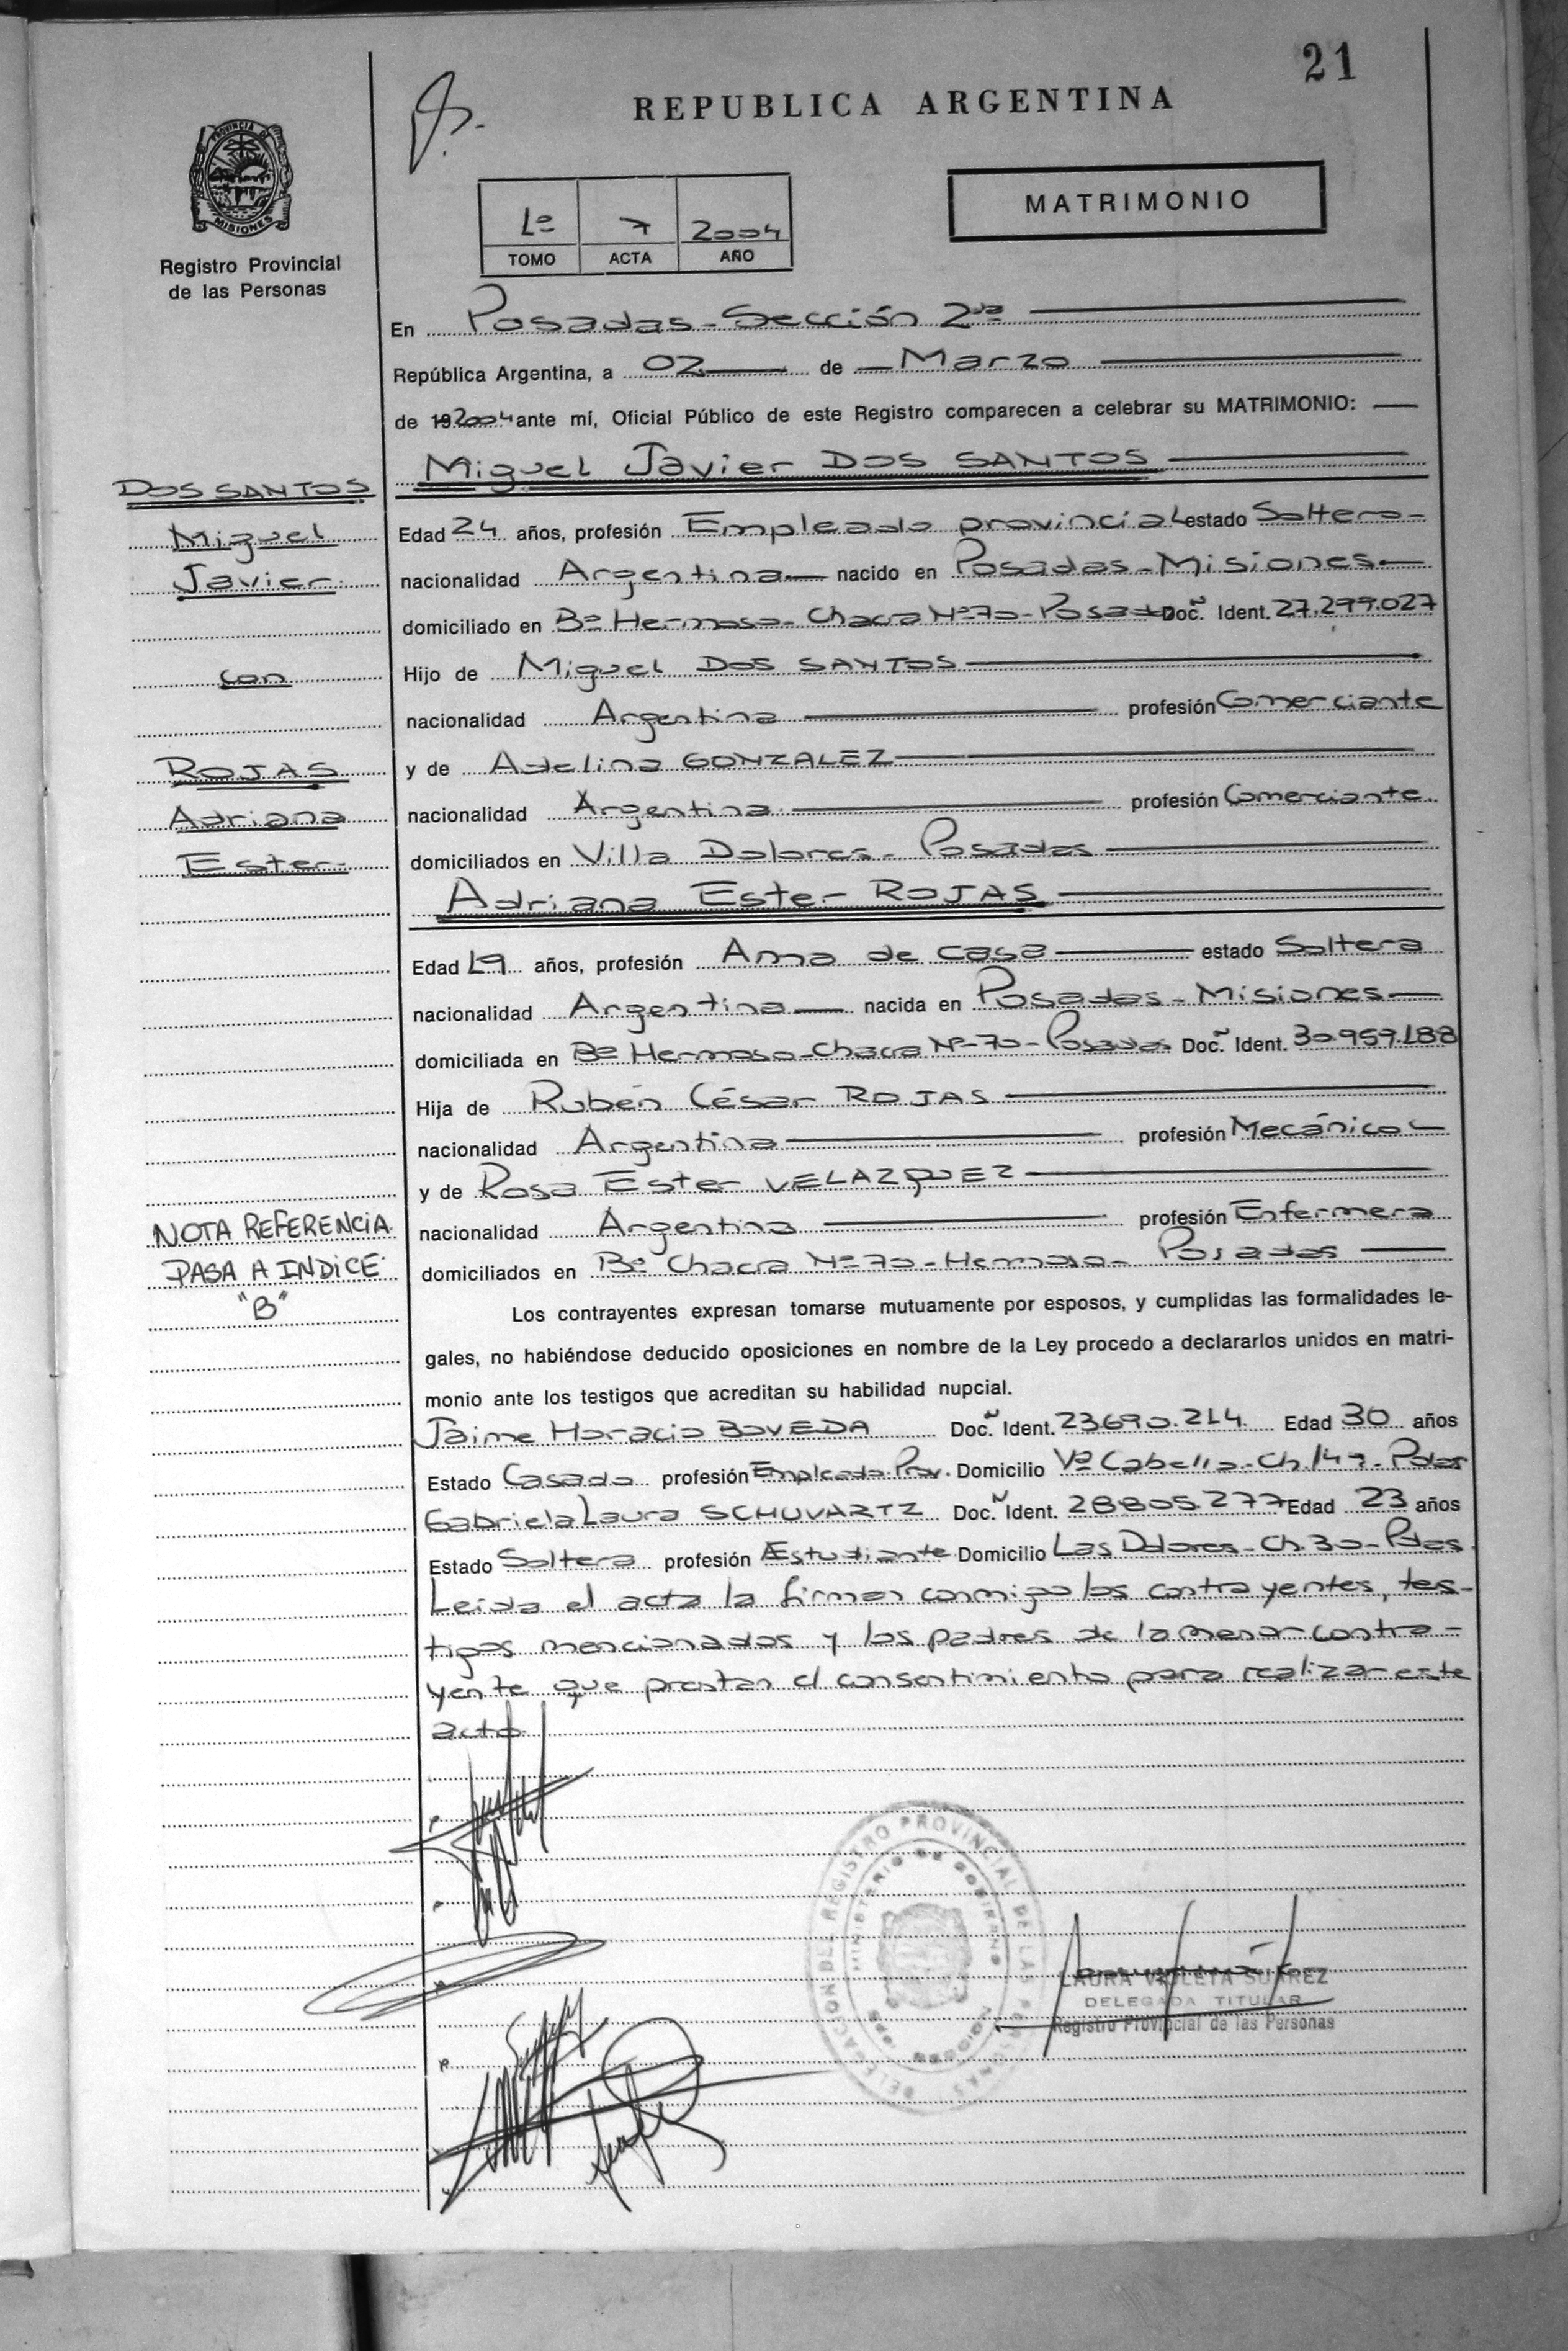 21
REPUBLICA ARGENTINA
MATRIMONIO
PROVINCIA DE
MISIONES
Registro Provincial
de las Personas
1º 7 2004
TOMO ACTA AÑO
En Posadas - Sección 2da
República Argentina, a 02 de Marzo
de 19 2004 ante mí, Oficial Público de este Registro comparecen a celebrar su MATRIMONIO:
Miguel Javier DOS SANTOS
DOS SANTOS
Miguel
Javier
con
ROJAS
Adriana
Ester
Edad 24 años, profesión Empleado provincial estado Soltero
nacionalidad Argentina nacido en Posadas - Misiones
domiciliado en Bº Hermoso - Chacra Nº 70 - Posadas Doc. Ident. 27.299.027
Hijo de Miguel DOS SANTOS
nacionalidad Argentina profesión Comerciante
y de Adelina GONZALEZ
nacionalidad Argentina profesión Comerciante.
domiciliados en Villa Dolores - Posadas
Adriana Ester ROJAS
Edad 19 años, profesión Ama de casa estado Soltera
nacionalidad Argentina nacida en Posadas - Misiones
domiciliada en Bº Hermoso - Chacra Nº 70 - Posadas Doc. Ident. 30.959.188
Hija de Rubén César ROJAS
nacionalidad Argentina profesión Mecánico
y de Rosa Ester VELAZQUEZ
nacionalidad Argentina profesión Enfermera
domiciliados en Bº Chacra Nº 70 - Hermoso - Posadas
NOTA REFERENCIA
PASA A INDICE
"B"
Los contrayentes expresan tomarse mutuamente por esposos, y cumplidas las formalidades le-
gales, no habiéndose deducido oposiciones en nombre de la Ley procedo a declararlos unidos en matri-
monio ante los testigos que acreditan su habilidad nupcial.
Jaime Horacio BOVEDA Doc. Ident. 23690.214 Edad 30 años
Estado Casado profesión Empleado Prov. Domicilio Vª Cabello - Ch. 149 - Pdas
Gabriela Laura SCHUVARTZ Doc. Ident. 28805.277 Edad 23 años
Estado Soltera profesión Estudiante Domicilio Las Dolores - Ch. 30 - Pdas.
Leida el acta la firman conmigo los contrayentes, tes-
tigos mencionados y los padres de la menor contra-
yente que prestan el consentimiento para realizar este
acto
DELEGACION DEL REGISTRO PROVINCIAL DE LAS PERSONAS
MINISTERIO DE GOBIERNO
LAURA VIOLETA SUAREZ
DELEGADA TITULAR
Registro Provincial de las Personas